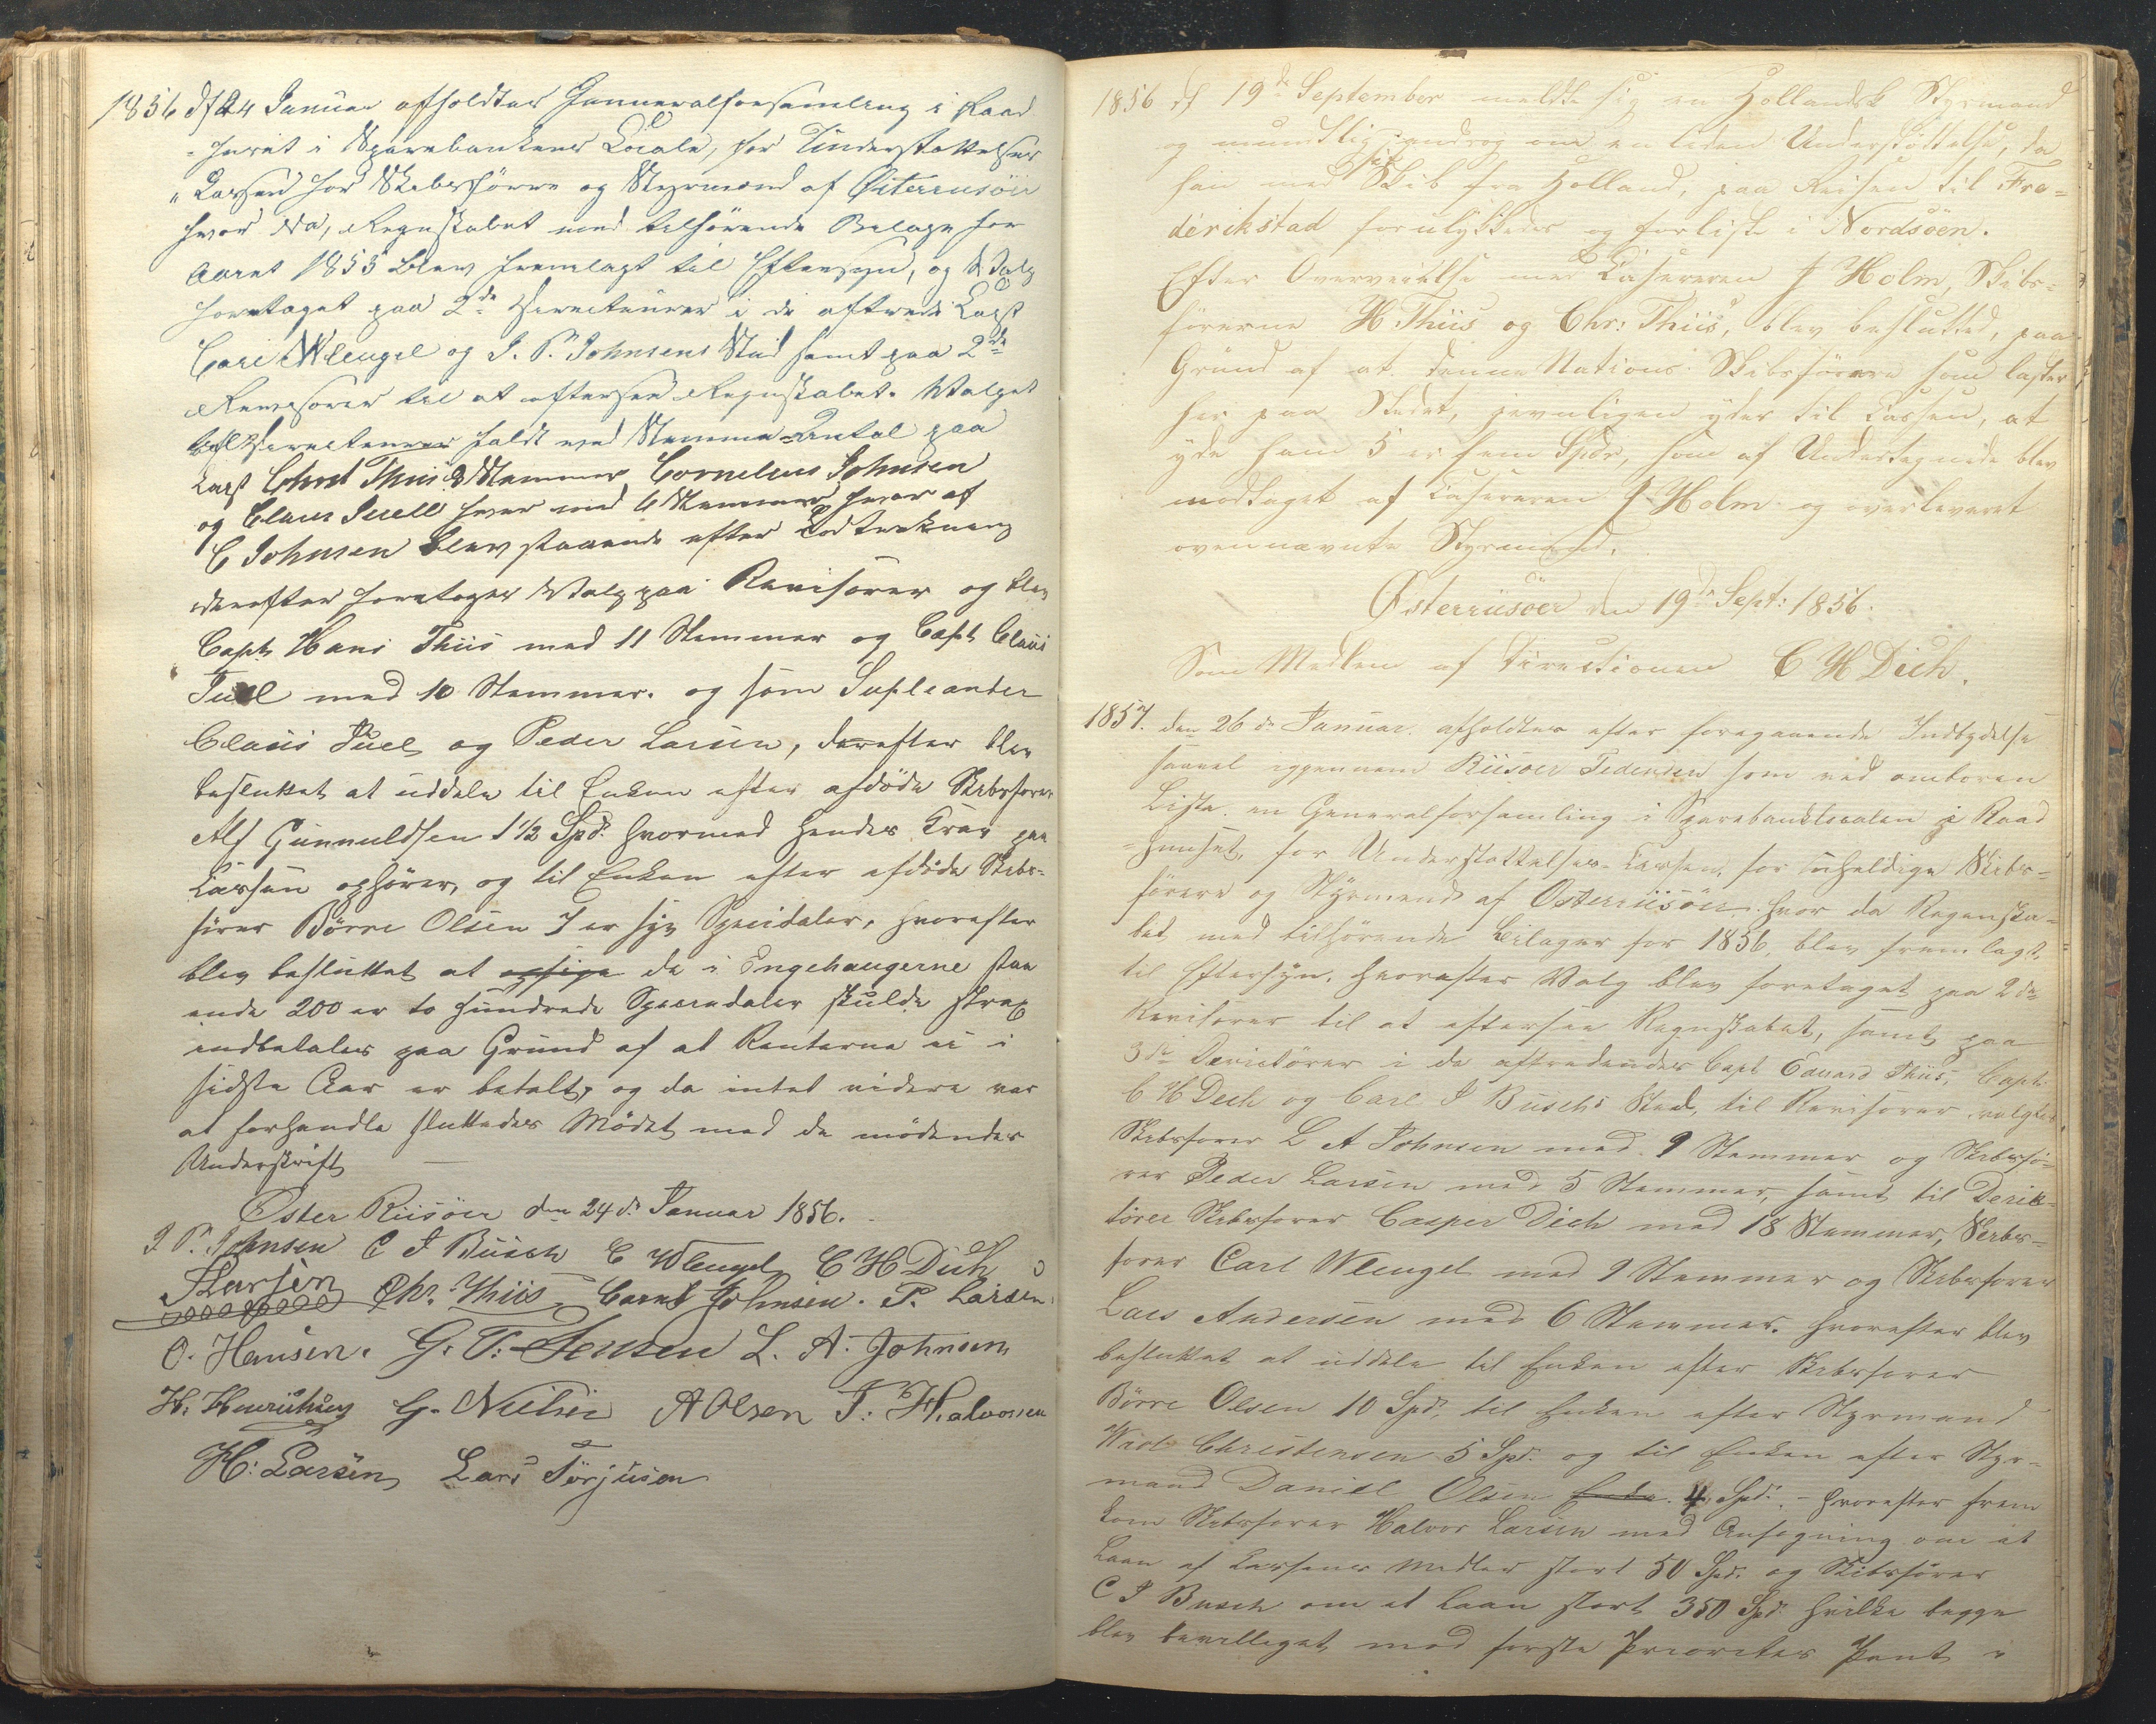 1856 d 24 Januar afholdtes Generalforsamling i Raad
-huset i Sparebankens Locale, for Understøttelses
"Cassen for Skibsførere og Styrmænd af Østerriisöer
hvor da, Regnskabet med tilhørende Bilage for
Aaret 1855 blev fremlagt til Eftersyn, og Valg
foretaget paa 2de Directeurer i de aftraadte Capt
Carl Wleugel og I. P. Johnsens Sted samt paa 2de
Revisorer til at eftersee Regnskabet. Valget
Directeurer faldt med Stemme-Antal paa
Capt Christ Thiis 8 Stemmer Cornelius Johnsen
og Claus Juell hver med 6 Stemmer hvor af
C Johnsen blev staaende efter Lodtrækning
derefter foretoges Valg paa Revisorer og blev
Capt Hans Thiis med 11 Stemmer og Capt Claus
Juel med 10 Stemmer. og som Supleanter
Claus Juel og Peder Larsen, derefter blev
besluttet at uddele til Enken efter afdöde Skibsfører
Alf Gunnuldsen 1 1/2 Spd. hvormed hendes Krav paa
Cassen ophører, og til Enken efter afdöde Skibs-
fører Börre Olsen 7 er syv Speciedaler, hvorefter
blev besluttet at opsige de i Engehaugerne staa
ende 200 er to hundrede Speciedaler skulde strax
indbetales paa Grund af at Renterne ei i
sidste Aar er betalt, og da intet videre var
at forhandle sluttedes Mödet med de mödendes
Underskrift —
Öster Riisöer den 24de Januar 1856.
I P. Johnsen C I Büsch C Wleugel C H Dich
Larsen Chr. Thiis Corns Johnsen. P. Larsen
O. Hansen. G. T. Jensen L. A. Johnsen
H. Henrichsen G. Nielsen A Olsen T. Halvorsen
H: Larsen Lars Torjusen
1856 d 19de September meldte sig en Hollandsk Styrmand
og mundtlig androg om en liden Understöttelse, da
han med sit Skib fra Holland, paa Reisen til Fre-
derikstad forulykkedes og forliste i Nordsöen.
Efter Overveielse med Casereren J Holm, Skibs-
förerne H. Thiis og Chr: Thiis, blev besluttet, paa
Grund af at denne Nations Skibsförere som laster
her paa Stedet, jevnligen yder til Cassen, at
yde ham 5 er fem Spdr, som af Undertegnede blev
modtaget af Casereren J Holm og overleveret
ovennævnte Styrmand.
Österriisöer den 19de Sept: 1856.
Som Medlem af Directionen C H Dich.
1857. den 26de Januar. afholdtes efter foregaaende Indbydelse
saavel igjennem Riisöer Tidende som ved omboren
Liste. en Generalforsamling i Sparebanklocalen i Raad
-huuset, for Understøttelses-Cassen, for uheldige Skibs-
förere og Styrmænd af Österriisöer. hvor da Regnska-
bet med tilhörende Bilager for 1856, blev fremlagt
til Eftersyn, hvorefter Valg blev foretaget paa 2de
Revisorer til at eftersee Regnskabet, samt paa
3de Directörer i de aftrædendes Capt Edvard Thiis, Capt.
C H Dich og Carl I Buschs Sted, til Revisorer valgtes
Skibsfører L A Johnsen med 9 Stemmer og Skibsfö-
rer Peder Larsen med 5 Stemmer, samt til Derik-
törer Skibsfører Casper Dich med 18 Stemmer, Skibs-
fører Carl Wleugel med 9 Stemmer og Skibsfører
Lars Andersen med 6 Stemmer. hvorefter blev
besluttet at uddele til Enken efter Skibsfører
Börre Olsen 10 Spd, til Enken efter Styrmand
Christensen 5 Spd. og til Enken efter Styr-
mand Daniel Olsen Enke. 4 Spd. - hvorefter frem
kom Skibsfører Halvor Larsen med Ansøgning om et
Laan af Cassens Midler stort 50 Spd. og Skibsförer
C I Busch om et Laan stort 350 Spd. hvilke begge
blev bevilliget mod første Prioritets Pant i